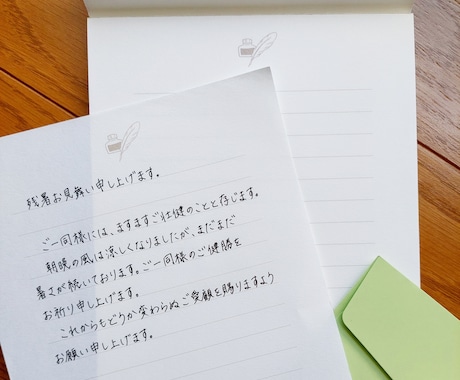 残暑お見舞い申し上げます。
ご一同様には、ますますご壮健のことと存じます。
朝晩の風は涼しくなりましたが、まだまだ
暑さが続いております。ご一同様のご健勝を
お祈り申し上げます。
これからもどうか変わらぬご愛顧を賜りますよう
お願い申し上げます。